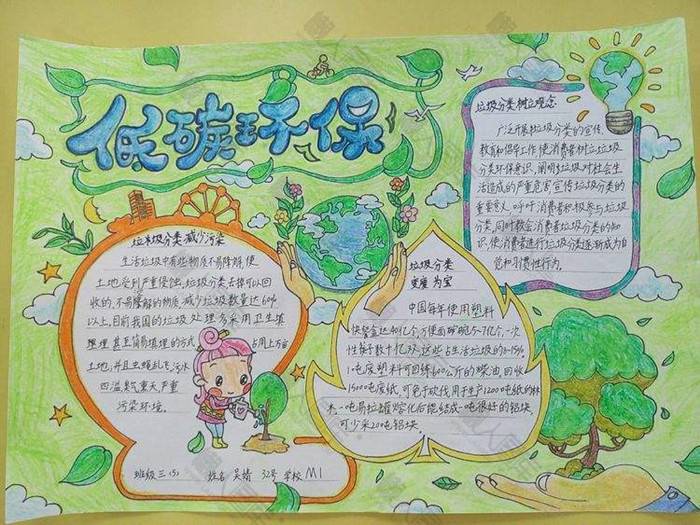 低碳环保
垃圾分类树立观念
广泛开展垃圾分类的宣传、
教育和倡导工作,使消费者树立垃圾
分类环保意识,阐明垃圾对社会生
活造成的严重危害宣传垃圾分类的
重要意义,呼吁消费者积极参与垃圾
分类,同时教会消费者垃圾分类的知
识,使消费者进行垃圾分类逐渐成为自
觉和习惯性行为。
垃圾分类减少污染
生活垃圾中有些物质不易降解,使
土地受到严重侵蚀,垃圾分类去掉可以回
收的,不易降解的物质,减少垃圾数量达60%
以上,目前我国的垃圾处理多采用卫生填
埋甚至简易填埋的方式,占用上万亩
土地,并且虫蝇乱飞,污水
四溢,臭气熏天,严重
污染环境。
垃圾分类
变废为宝
中国每年使用塑料
快餐盒达40亿个,方便面碗5-7亿个,一次
性筷子数十亿双,这些占生活垃圾的8-15%
1吨废塑料可回炼600公斤的柴油,回收
1500吨废纸,可免于砍伐用于生产1200吨纸的林
木,一吨易拉罐熔化后能结成一吨很好的铝块,
可少采20吨铝块。
班级三(5) 姓名 吴婧 32号 学校 M1